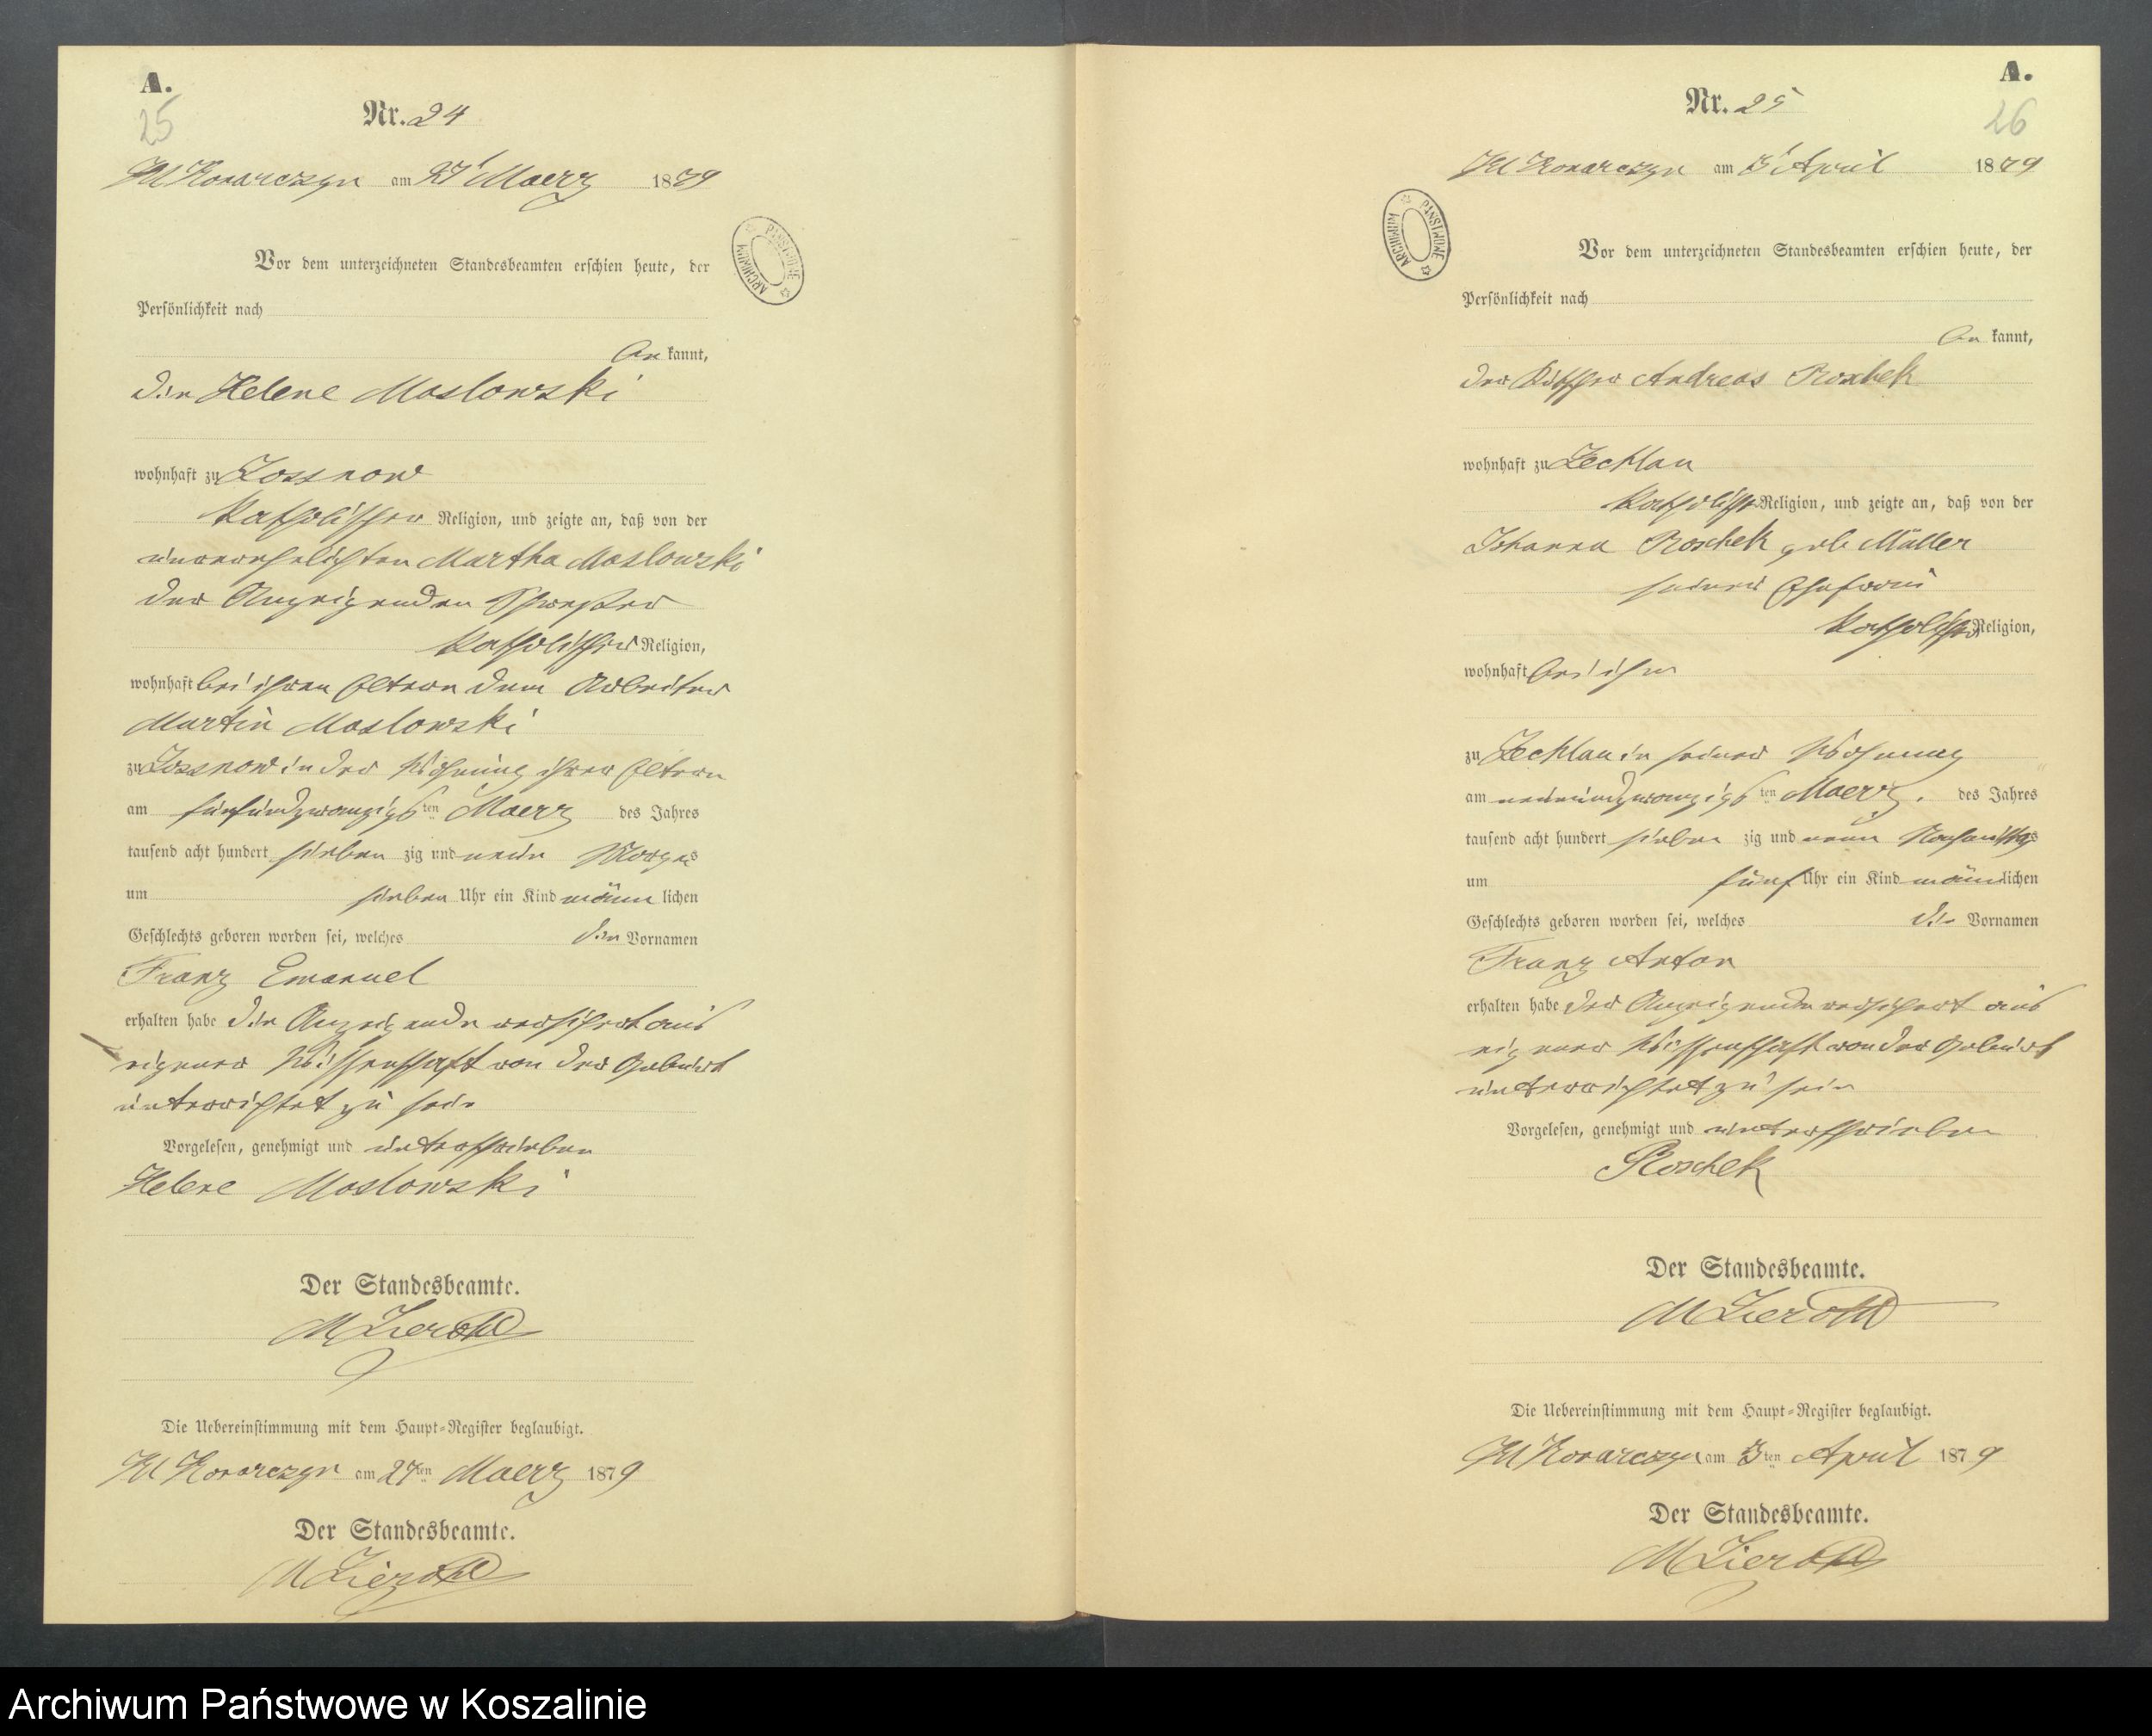 A.
25
Nr. 24
Kl Konarczyn am 27t Maerz 1879
Vor dem unterzeichneten Standesbeamten erschien heute, der
Persönlichkeit nach
be kannt,
die Helene Maslowski
wohnhaft zu Zossnow
katholischer Religion, und zeigte an, daß von der
unverehelichten Martha Maslowski
der Anzeigenden Schwester
katholischer Religion,
wohnhaft bei ihren Eltern dem Arbeiter
Martin Maslowski
zu Zossnow in der Wohnung ihrer Eltern
am fünfundzwanzigsten Maerz des Jahres
tausend acht hundert sieben zig und neun Morgens
um sieben Uhr ein Kind männ lichen
Geschlechts geboren worden sei, welches die Vornamen
Franz Emanuel
erhalten habe die Anzeigende versichert aus
eigener Wissenschaft von der Geburt
unterrichtet zu sein
Vorgelesen, genehmigt und unterschrieben
Helene Maslowski
Der Standesbeamte.
Die Uebereinstimmung mit dem Haupt-Register beglaubigt.
Kl Konarczyn am 27ten Maerz 1879
Der Standesbeamte.
A.
26
Nr. 25
Kl Konarczyn am 3t April 1879
ARCHIWUM PAŃSTWOWE
Vor dem unterzeichneten Standesbeamten erschien heute, der
Persönlichkeit nach
be kannt,
der Andreas Roschek
wohnhaft zu Zechlau
katholischer Religion, und zeigte an, daß von der
Johanna Roschek geb Müller
seiner Ehefrau
katholischer Religion,
wohnhaft bei ihm
zu Zechlau in seiner Wohnung
am neunundzwanzigsten Maerz. des Jahres
tausend acht hundert sieben zig und neun Nachmittags
um fünf Uhr ein Kind männlichen
Geschlechts geboren worden sei, welches die Vornamen
Franz Anton
erhalten habe der Anzeigende versichert aus
eigener Wissenschaft von der Geburt
unterrichtet zu sein
Vorgelesen, genehmigt und unterschrieben
Roschek
Der Standesbeamte.
Die Uebereinstimmung mit dem Haupt-Register beglaubigt.
Kl Konarczyn am 3ten April 1879
Der Standesbeamte.
Archiwum Państwowe w Koszalinie